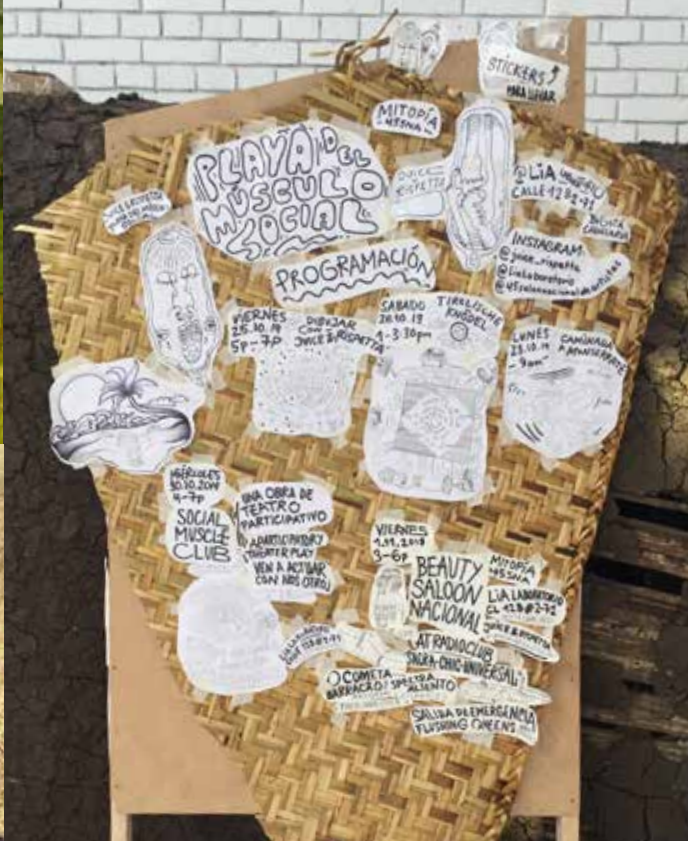 STICKERS
PARA LLEVAR
MITOPÍA
45SNA
PLAYA DEL
MÚSCULO
SOCIAL
JUICE &
RISPETTA
@LIA
CALLE 12B 2-71
PROGRAMACIÓN
INSTAGRAM:
@juice_rispetta
@lialaboratorio
@45salonnacionaldeartistas
VIERNES
25.10.19
5p-7p
DIBUJAR
CON
JUICE & RISPETTA
SABADO
1-3:30pm
TIROLISCHE
KNÖDEL
LUNES
28.10.19
-9am
CAMINADA
A MONSERRATE
MIÉRCOLES
30.10.2019
4-7p
SOCIAL
MUSCLE
CLUB
UNA OBRA DE
TEATRO
PARTICIPATIVO
A PARTICIPATORY
THEATER PLAY
VEN A ACTIVAR
CON NOSOTROS
VIERNES
1.11.2019
3-6p
BEAUTY
SALOON
NACIONAL
MITOPÍA
45SNA
LIA LABORATORIO
CL 12B #2-71
JUICE & RISPETTA
AT RADIOCLUB
SNGRA-CHIC-UNIVERSAL
COMETA
BARRACÃO / SPECTRA
ALIENTO
SALIDA DE EMERGENCIA
FLUSHING QUEENS